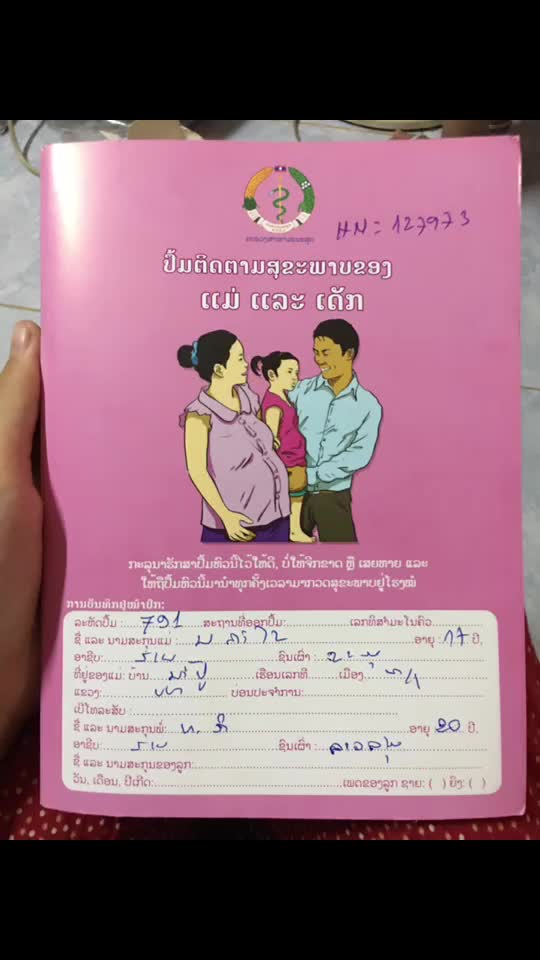 ກະຊວງສາທາລະນະສຸກ
HN = 127973
ປຶ້ມຕິດຕາມສຸຂະພາບຂອງ
ແມ່ ແລະ ເດັກ
ກະລຸນາຮັກສາປຶ້ມຫົວນີ້ໄວ້ໃຫ້ດີ, ບໍ່ໃຫ້ຈີກຂາດ ຫຼື ເສຍຫາຍ ແລະ
ໃຫ້ຖືປຶ້ມຫົວນີ້ມານຳທຸກຄັ້ງເວລາມາກວດສຸຂະພາບຢູ່ໂຮງໝໍ
ການບັນທຶກຢູ່ໜ້າປຶກ:
ລະຫັດປຶ້ມ : 791 ສະຖານທີ່ອອກປຶ້ມ: ເລກທີສຳມະໂນຄົວ
ຊື່ ແລະ ນາມສະກຸນແມ່ : ອາຍຸ : 17 ປີ,
ອາຊີບ: ຊົນເຜົ່າ :
ທີ່ຢູ່ຂອງແມ່: ບ້ານ ເຮືອນເລກທີ ເມືອງ
ແຂວງ: ບ່ອນປະຈຳການ:
ເບີໂທລະສັບ :
ຊື່ ແລະ ນາມສະກຸນພໍ່: ອາຍຸ 20 ປີ,
ອາຊີບ: ຊົນເຜົ່າ :
ຊື່ ແລະ ນາມສະກຸນຂອງລູກ:
ວັນ, ເດືອນ, ປີເກີດ: ເພດຂອງລູກ ຊາຍ: ( ) ຍິງ: ( )